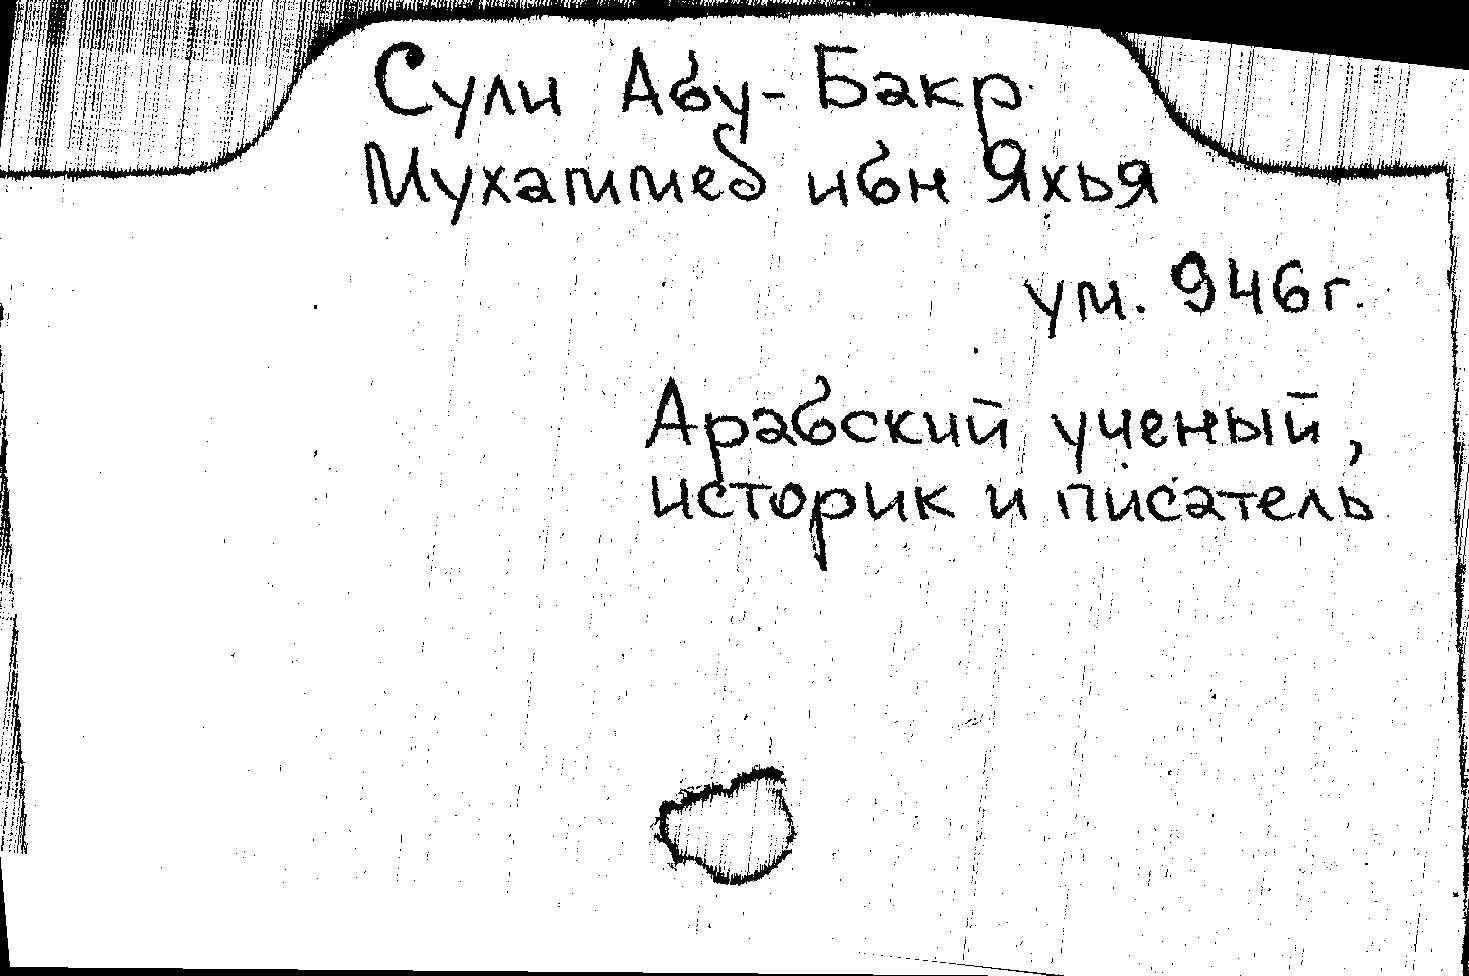 Сули Абу-Бакр
Мухаммед ибн Яхья
ум. 946 г.
Арабский ученый,
историк и писатель